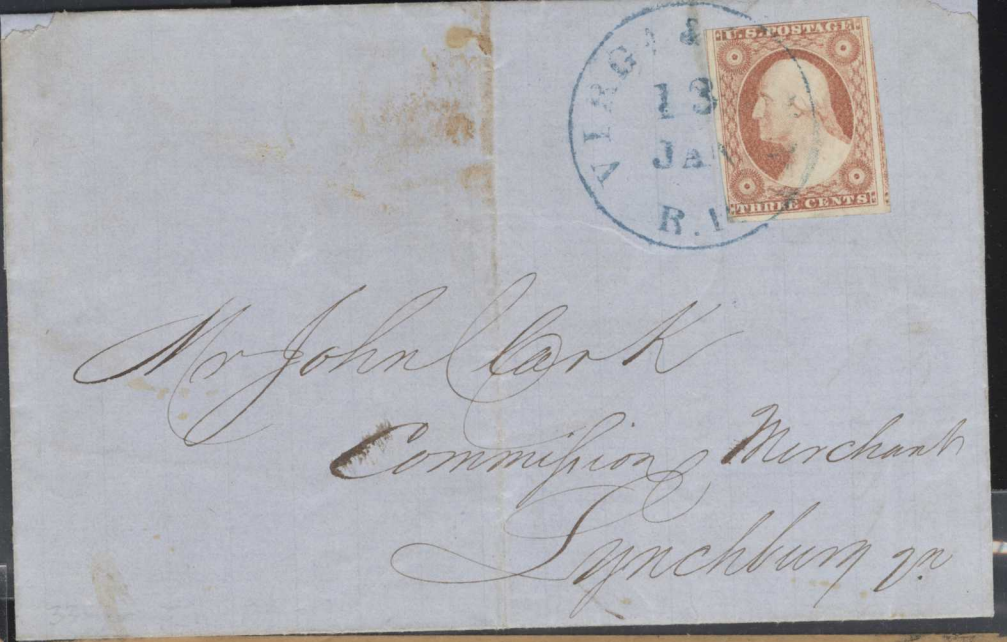 VIRGA &
13
JAN
R.
U.S. POSTAGE
THREE CENTS
Mr John Clark
Commiſsion Merchant
Lynchburg Va